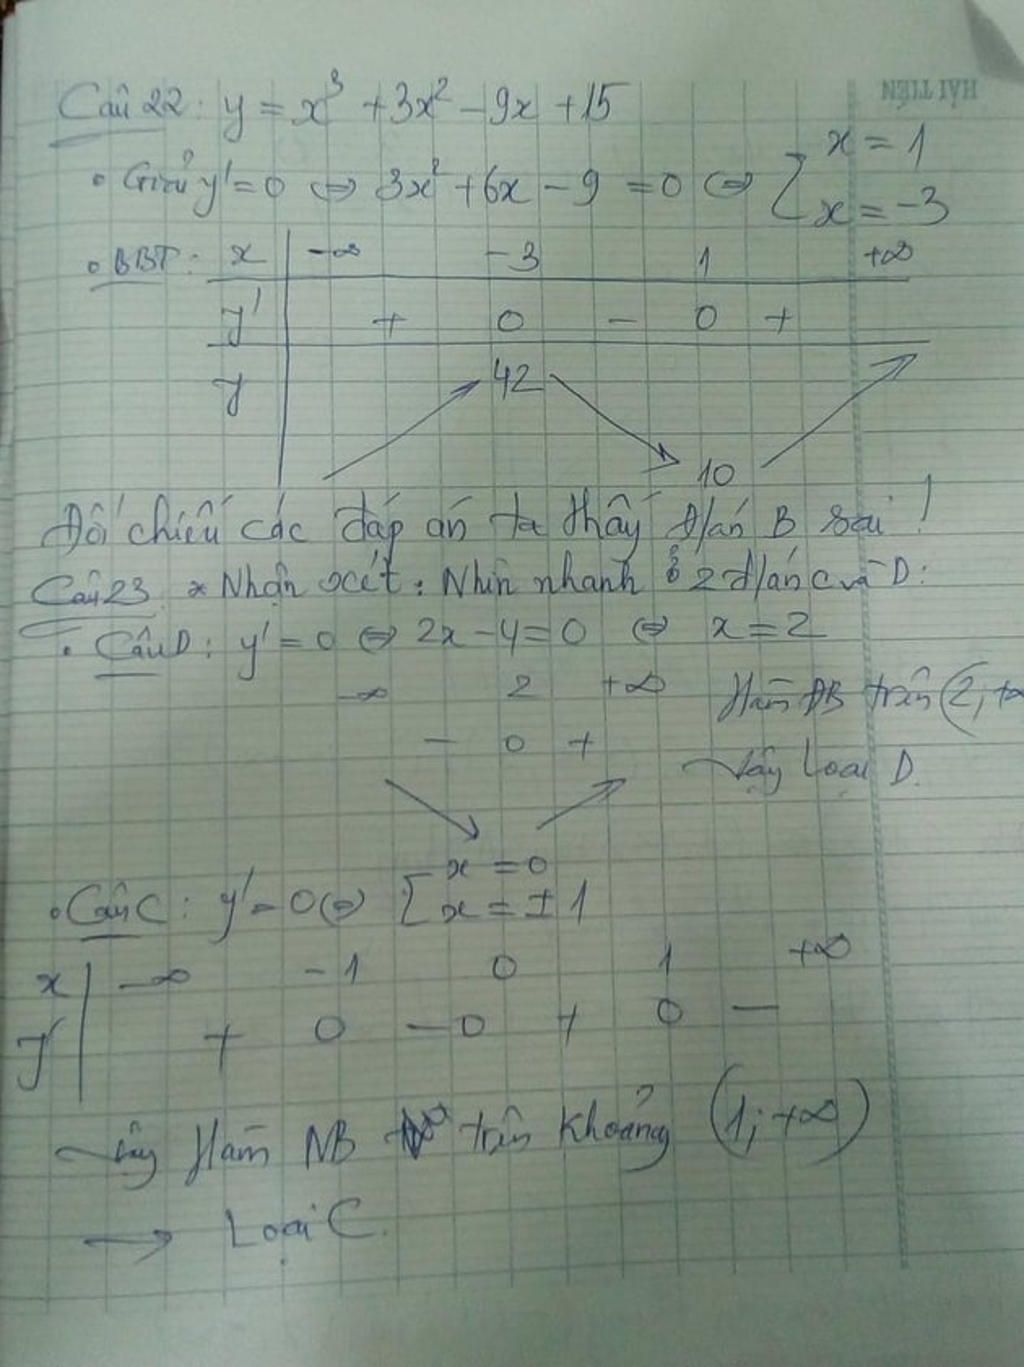 HẢI TIẾN
Câu 22: y = x³ + 3x² - 9x + 15
• Giải y' = 0 ⇔ 3x² + 6x - 9 = 0 ⇔ [ x = 1
x = -3
• BBT: x -∞ -3 1 +∞
y' + 0 - 0 +
y 42
10
Đối chiếu các đáp án ta thấy Đ/án B sai!
Câu 23 * Nhận xét: Nhìn nhanh ở 2 đ/án C và D:
• Câu D: y' = 0 ⇔ 2x - 4 = 0 ⇔ x = 2
-∞ 2 +∞ Hàm ĐB trên (2; +∞
- 0 + Vậy loại D.
• Câu C: y' = 0 ⇔ [ x = 0
x = ±1
x -∞ -1 0 1 +∞
y' + 0 - 0 + 0 -
Vậy Hàm NB trên khoảng (1; +∞)
→ Loại C.